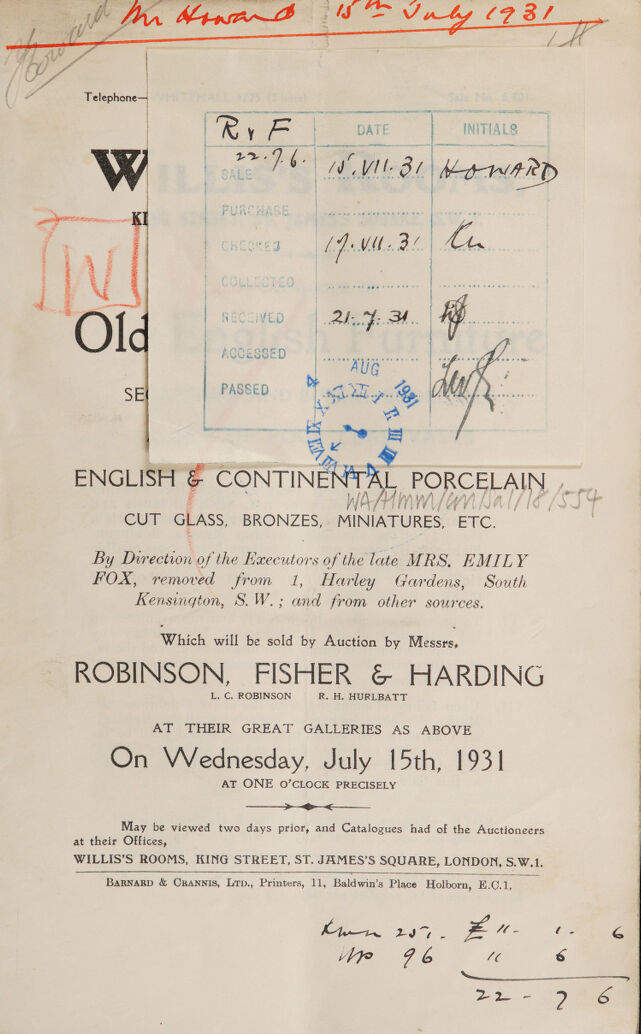 Mr Howard 15th July 1931
Howard
Telephone—
W
KI
W
Old
SE
R & F
22.7.6.
DATE
INITIALS
SALE 15.VII.31 HOWARD
PURCHASE
CHECKED 17.VII.31
COLLECTED
RECEIVED 21.7.31
ACCESSED
PASSED
4 AUG 1931
ENGLISH & CONTINENTAL PORCELAIN
WA/Hmm/cm/Sal/18/554
CUT GLASS, BRONZES, MINIATURES, ETC.
By Direction of the Executors of the late MRS. EMILY
FOX, removed from 1, Harley Gardens, South
Kensington, S.W.; and from other sources.
Which will be sold by Auction by Messrs.
ROBINSON, FISHER & HARDING
L. C. ROBINSON R. H. HURLBATT
AT THEIR GREAT GALLERIES AS ABOVE
On Wednesday, July 15th, 1931
AT ONE O'CLOCK PRECISELY
May be viewed two days prior, and Catalogues had of the Auctioneers
at their Offices,
WILLIS'S ROOMS, KING STREET, ST. JAMES'S SQUARE, LONDON, S.W.1.
BARNARD & CRANNIS, LTD., Printers, 11, Baldwin's Place Holborn, E.C.1.
251. £ 11 - 1 - 6
96 11 6
22 - 7 6